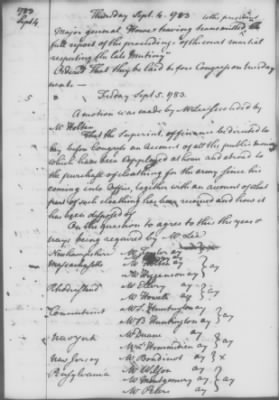 1783
Sept 4
Thursday Sept. 4. 1783
Major general Howe having transmitted the
full report of the proceedings of the court martial
respecting the late mutiny
Ordered That they be laid before Congress on tuesday
next
5
Friday Sept 5. 1783.
A motion was made by Mr Lee seconded by
Mr Holten
That the Superint. of finance be directed to
lay before Congress an Account of all the public money
which have been applied at home and abroad to
the purchase of cloathing for the army since his
coming into Office, together with an account of what
part of such cloathing has been received and how it
has been disposed of
On the question to agree to this the yeas &
nays being required by Mr Lee
Newhampshire
Massachusetts Mr Holten ay } ay
Mr Higginson ay
Rhodeisland Mr Ellery ay } ay
Mr Howell ay
Connecticut Mr S. Huntington ay } ay
Mr B Huntington ay
New york Mr Duane ay } ay
Mr L'Hommedieu ay
New Jersey Mr Boudinot ay } x
Pensylvania Mr Wilson ay
Mr Montgomery ay } ay
Mr Peters ay